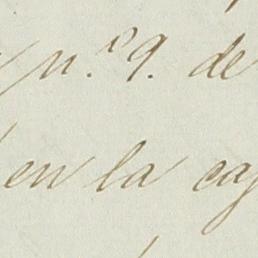 n.º 9. de
en la ca